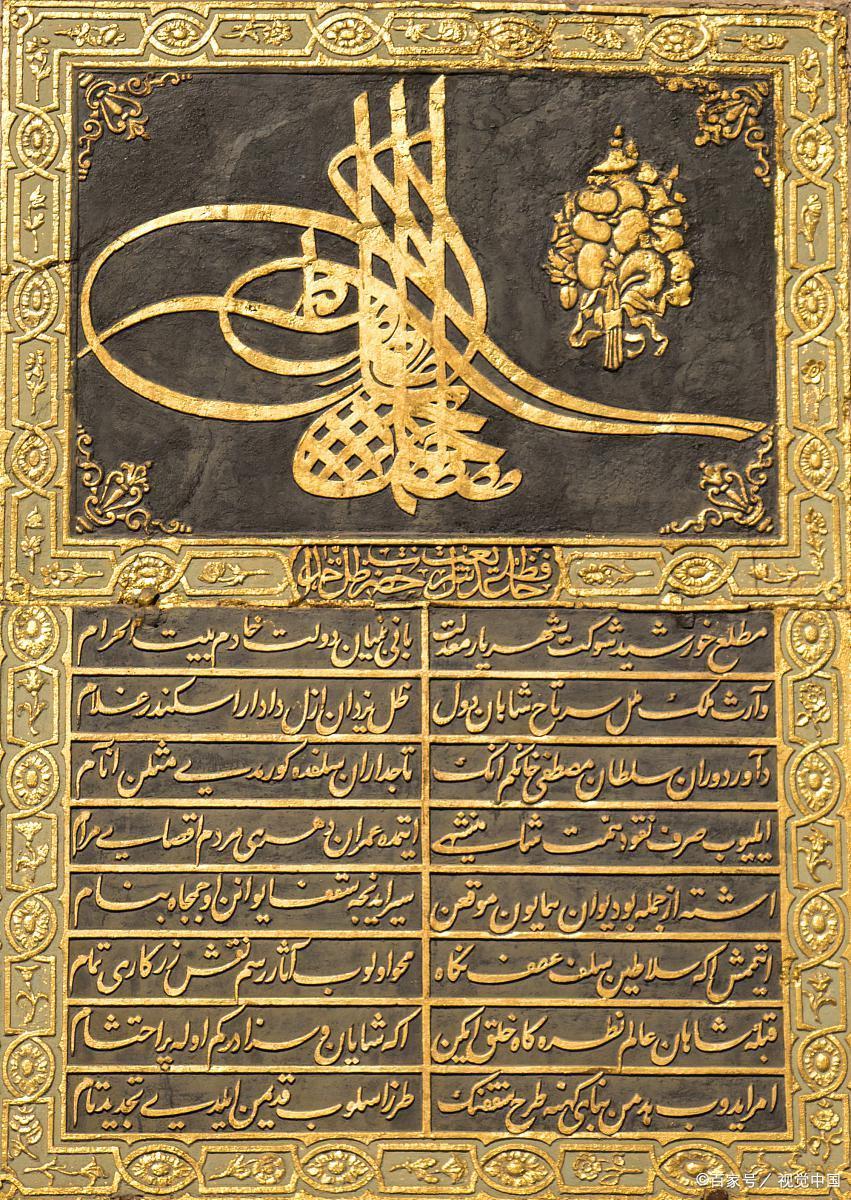 مطلع خورشید شوکت شهریار معدلت بانی بنیان دولت خادم بیت الحرام
وارث ملک ملل سرتاج شاهان دول ظل یزدان ازل دادار اسکندر غلام
داور دوران سلطان مصطفی خانکم انک تاجداران سلفده کورمدی مثلن انام
ایلیوب صرف نقود همت ایتمده عمران دهری اقصای مرام
اشته از جمله بو دیوان همایون موقعن سیر ایدنجه بنام
ایتمش اکه سلاطین سلف عطف نکاه محو اولوب آثار رسم نقش زرکاری تمام
قبله شاهان عالم نظره کاه خلق ایکن اکه شایان و سزادرکم اوله پر احتشام
امر ایدوب هدمن بنای کهنه طرح سقفنک طرز اسلوب قدیمن ایلدی تجدید تام
©百家号／视觉中国